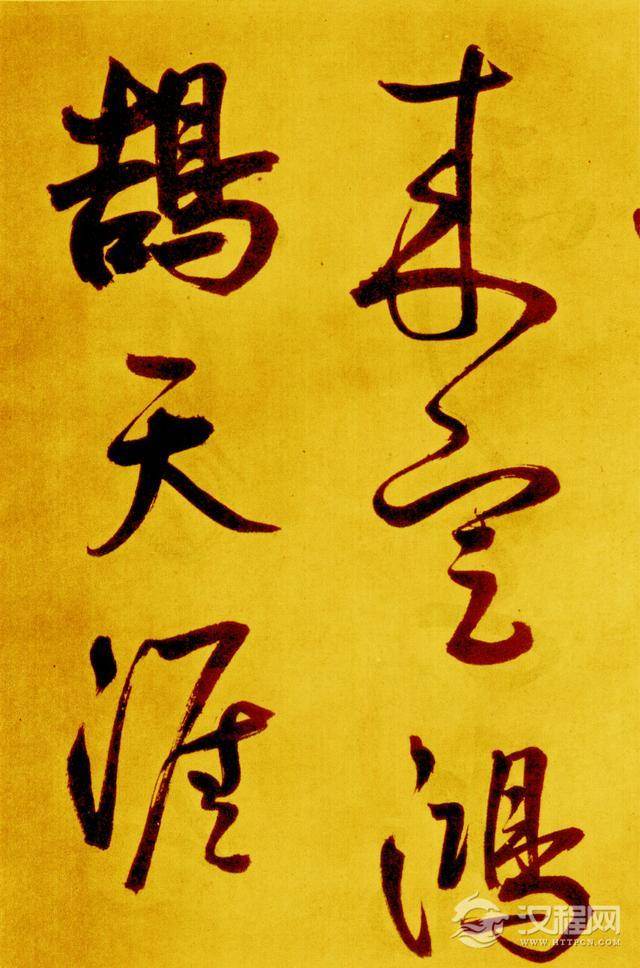 来空鴻
鵠天涯
汉程网
WWW.HTTPCN.COM